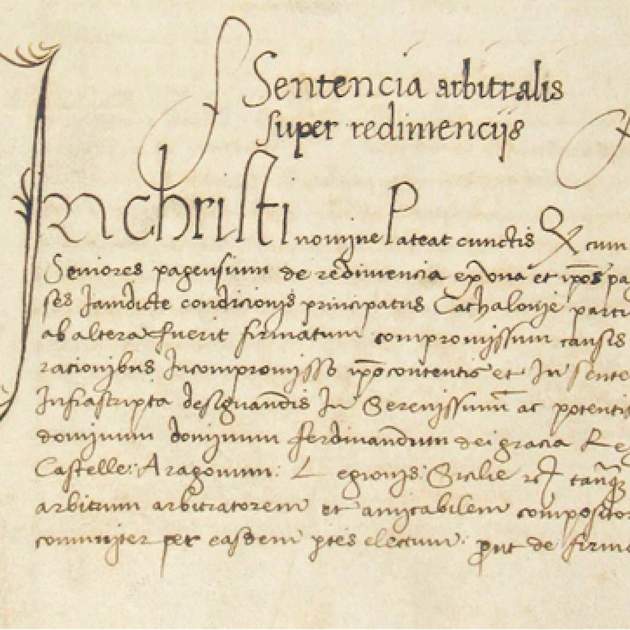 Sentencia arbitralis
super redimenciis
In christi nomine Pateat cunctis Q cum
Seniores pagensium de redimencia ex una et ipos pa
ses Jamdicte condicionis principatus Cathalonie parti
ab altera fuerit firmatum compromissum causis
racionibus Incompromisso ipo contentis et In sente
Infrascripta designandis In Serenissimum ac potentis
dominum dominum ferdinandum dei gracia Re
Castelle: Aragonum: Legionis: Sicilie
arbitrum arbitratorem et amicabilem compositor
comuniter per easdem ptes electum: prout de firma